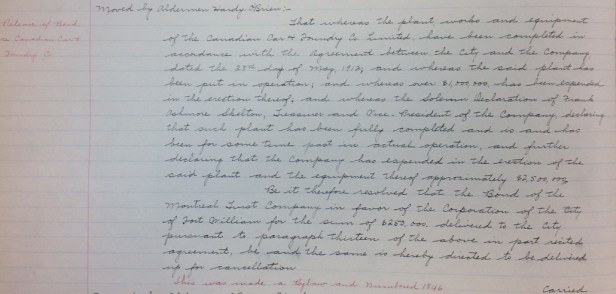 Moved by Aldermen Hardy
Release of Bond
re Canadian Car &
Foundry Co
That whereas the plant, works and equipment
of the Canadian Car & Foundry Co Limited, have been completed in
accordance with the Agreement between the City and the Company
dated the 29th day of May, 1912, and whereas the said plant has
been put in operation; and whereas over $1,000,000, has been expended
in the erection thereof; and whereas the Solemn Declaration of Frank
Ashmore Skelton, Treasurer and Vice-President of the Company, declaring
that such plant has been fully completed and is and has
been for some time past in actual operation, and further
declaring that the Company has expended in the erection of the
said plant and the equipment thereof approximately $2,500,000,
Be it therefore resolved that the Bond of the
Montreal Trust Company in favor of the Corporation of the City
of Fort William for the sum of $250,000. delivered to the City
pursuant to paragraph thirteen of the above in part recited
agreement, be and the same is hereby directed to be delivered
up for cancellation
This was made a Bylaw and Numbered 1846
Carried